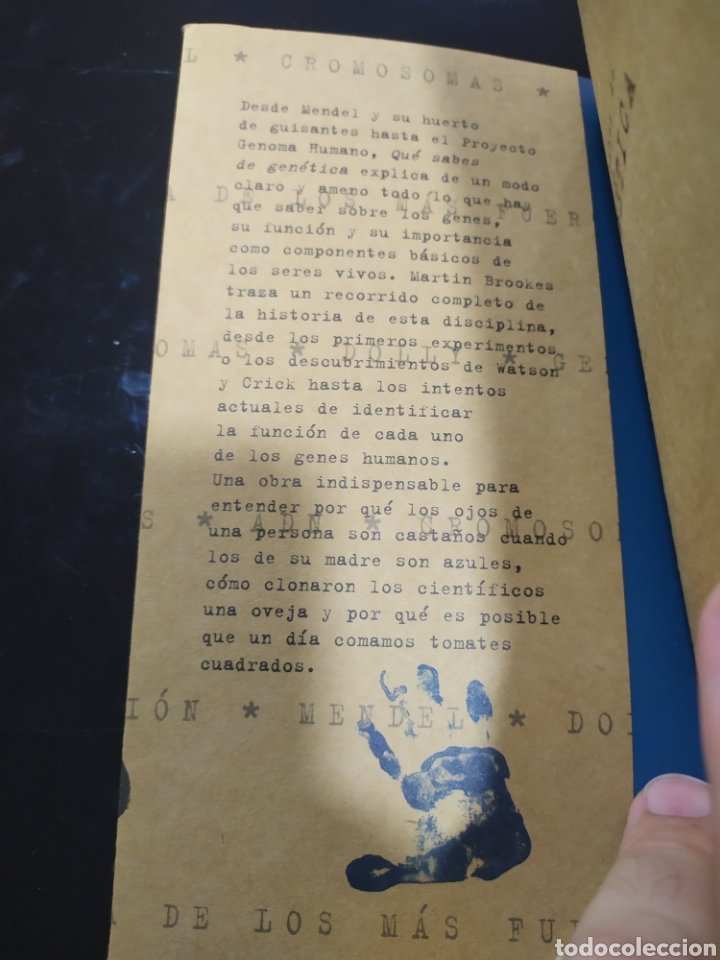 L * CROMOSOMAS *
Desde Mendel y su huerto
de guisantes hasta el Proyecto
Genoma Humano, Qué sabes
de genética explica de un modo
claro y ameno todo lo que hay
A DE LOS MÁS FUER
que saber sobre los genes,
su función y su importancia
como componentes básicos de
los seres vivos. Martin Brookes
traza un recorrido completo de
la historia de esta disciplina,
desde los primeros experimentos
OMAS * DOLLY * GE
o los descubrimientos de Watson
y Crick hasta los intentos
actuales de identificar
la función de cada uno
de los genes humanos.
Una obra indispensable para
entender por qué los ojos de
S * ADN * CROMOSO
una persona son castaños cuando
los de su madre son azules,
cómo clonaron los científicos
una oveja y por qué es posible
que un día comamos tomates
cuadrados.
IÓN * MENDEL * DO
A DE LOS MÁS FU
todocoleccion